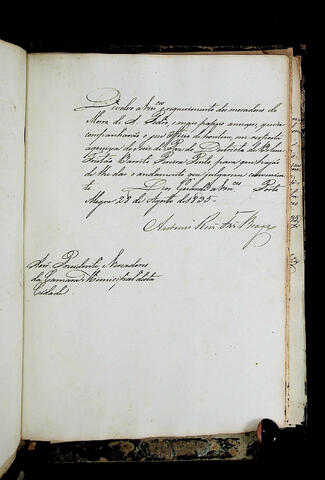 Devolvo a Vm.ces o requerimento dos moradores do
Morro de S. Pedro, e mais papeis annexos, que a
companharão o seu Officio de hontem, em resposta
Districto de Belem
para que hajão
de lhe dar o andamento que julgarem convenien
te. Deos Guarde a Vm.ces Porto
Alegre 28 de Agosto de 1835.
Antonio Roiz Frz Braga
Snr.es Presidente, e Vereadores
da Camara Municipal desta
Cidade